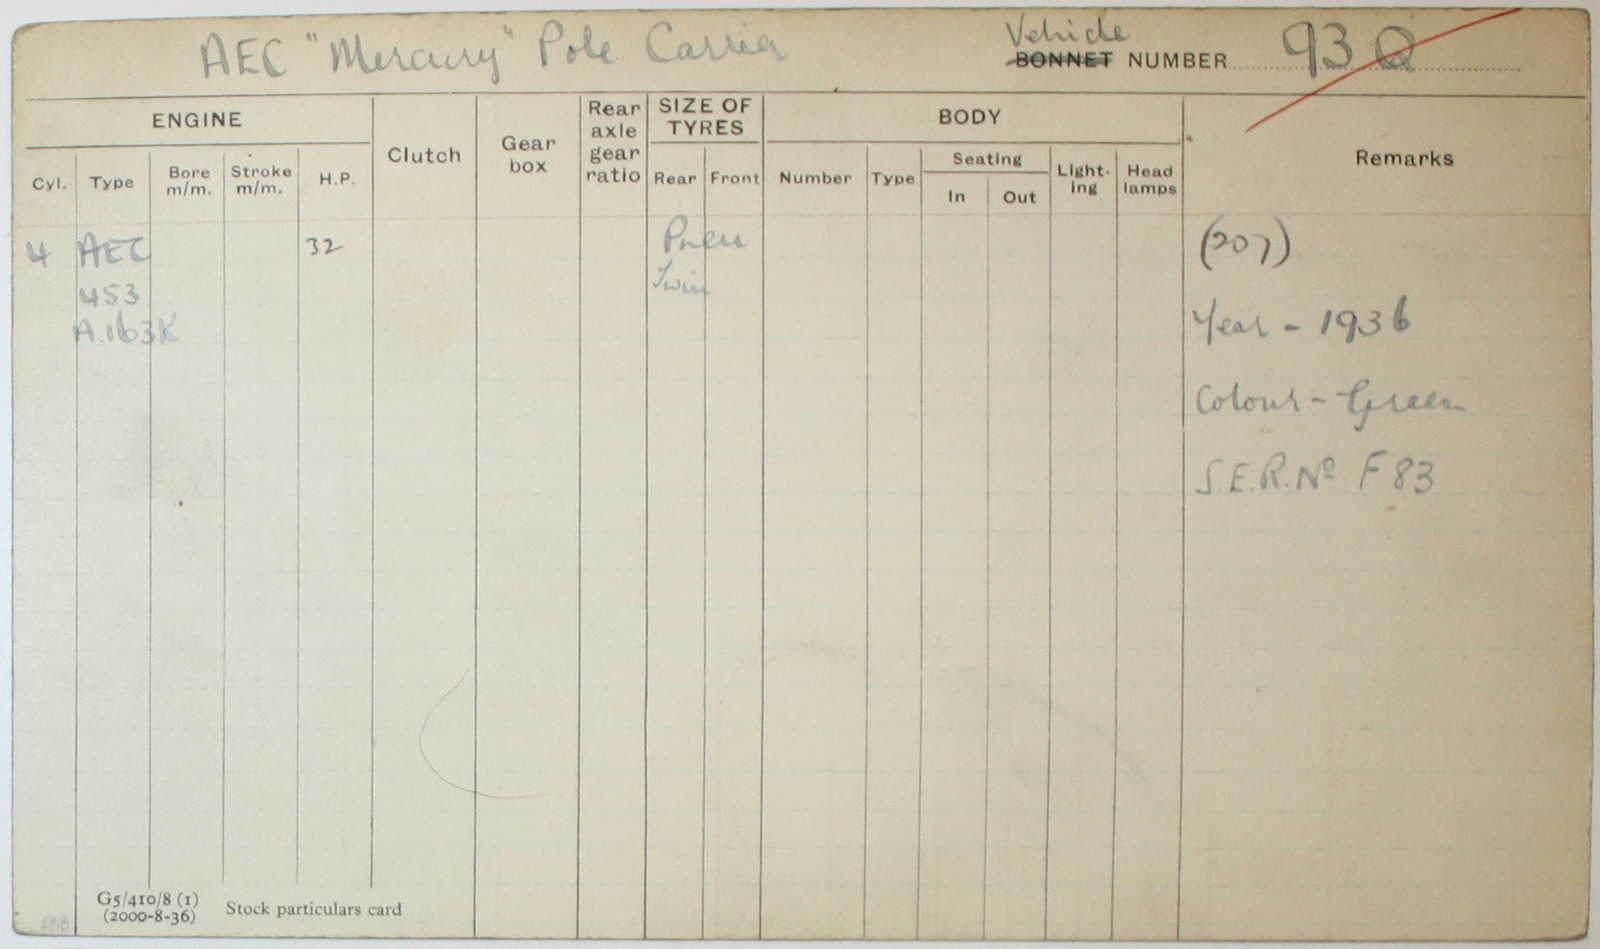 AEC "Mercury" Pole Carrier
Vehicle
BONNET NUMBER 93 Q
ENGINE
Clutch
Gear box
Rear axle gear ratio
SIZE OF TYRES
BODY
Remarks
Cyl. Type Bore m/m. Stroke m/m. H.P. Rear Front Number Type Seating In Out Light-ing Head lamps
4 AEC 32 Pneu (207)
453 Twin
A.163K Year - 1936
Colour - Green
S.E.R. No F 83
G5/410/8 (1)
(2000-8-36) Stock particulars card